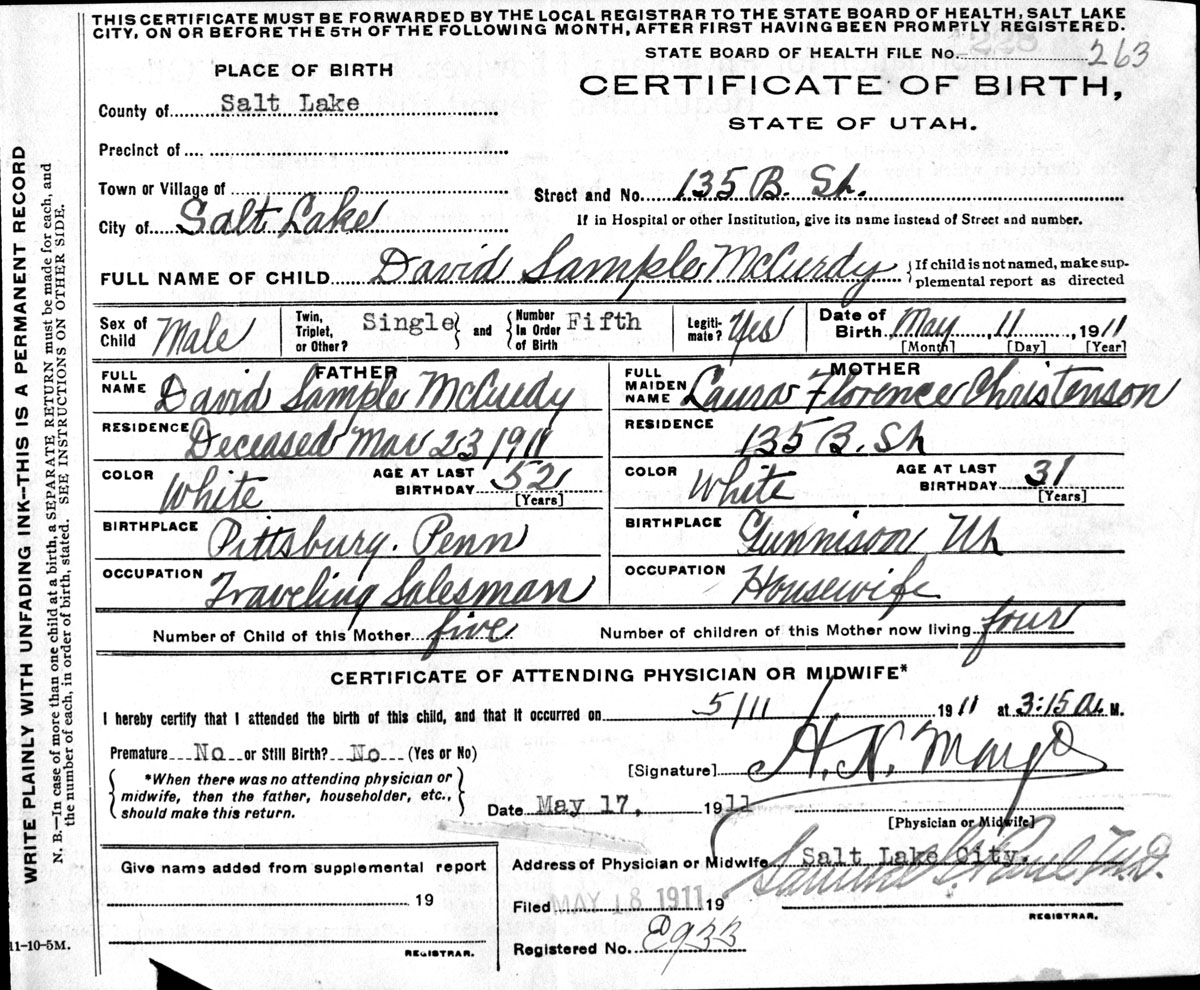 THIS CERTIFICATE MUST BE FORWARDED BY THE LOCAL REGISTRAR TO THE STATE BOARD OF HEALTH, SALT LAKE
CITY, ON OR BEFORE THE 5TH OF THE FOLLOWING MONTH, AFTER FIRST HAVING BEEN PROMPTLY REGISTERED.
STATE BOARD OF HEALTH FILE No. 228 263
PLACE OF BIRTH
CERTIFICATE OF BIRTH,
STATE OF UTAH.
County of Salt Lake
Precinct of
Town or Village of
Street and No. 135 B. St.
City of Salt Lake
If in Hospital or other Institution, give its name instead of Street and number.
FULL NAME OF CHILD David Sample McCurdy {If child is not named, make sup-
plemental report as directed
Sex of Child Male Twin, Triplet, or Other? Single} and {Number In Order of Birth Fifth Legiti-mate? Yes Date of Birth May, 11, 1911
[Month] [Day] [Year]
FATHER MOTHER
FULL NAME David Sample McCurdy FULL MAIDEN NAME Laura Florence Christenson
RESIDENCE Deceased Mar 23 1911 RESIDENCE 135 B. St
COLOR White AGE AT LAST BIRTHDAY 52 [Years] COLOR White AGE AT LAST BIRTHDAY 31 [Years]
BIRTHPLACE Pittsburg. Penn BIRTHPLACE Gunnison Ut
OCCUPATION Traveling Salesman OCCUPATION Housewife
Number of Child of this Mother five Number of children of this Mother now living four
CERTIFICATE OF ATTENDING PHYSICIAN OR MIDWIFE*
I hereby certify that I attended the birth of this child, and that it occurred on 5/11 1911 at 3:15 A. M.
Premature No or Still Birth? No (Yes or No)
[Signature] H. N. Mayo
{*When there was no attending physician or
midwife, then the father, householder, etc.,
should make this return.}
Date May 17, 1911
[Physician or Midwife]
Give name added from supplemental report
19
REGISTRAR.
Address of Physician or Midwife Salt Lake City.
Samuel G. Paul M.D.
Filed MAY 18 1911 19
REGISTRAR.
Registered No. E933
11-10-5M.
WRITE PLAINLY WITH UNFADING INK--THIS IS A PERMANENT RECORD
N. B.—In case of more than one child at a birth, a SEPARATE RETURN must be made for each, and
the number of each, in order of birth, stated. SEE INSTRUCTIONS ON OTHER SIDE.